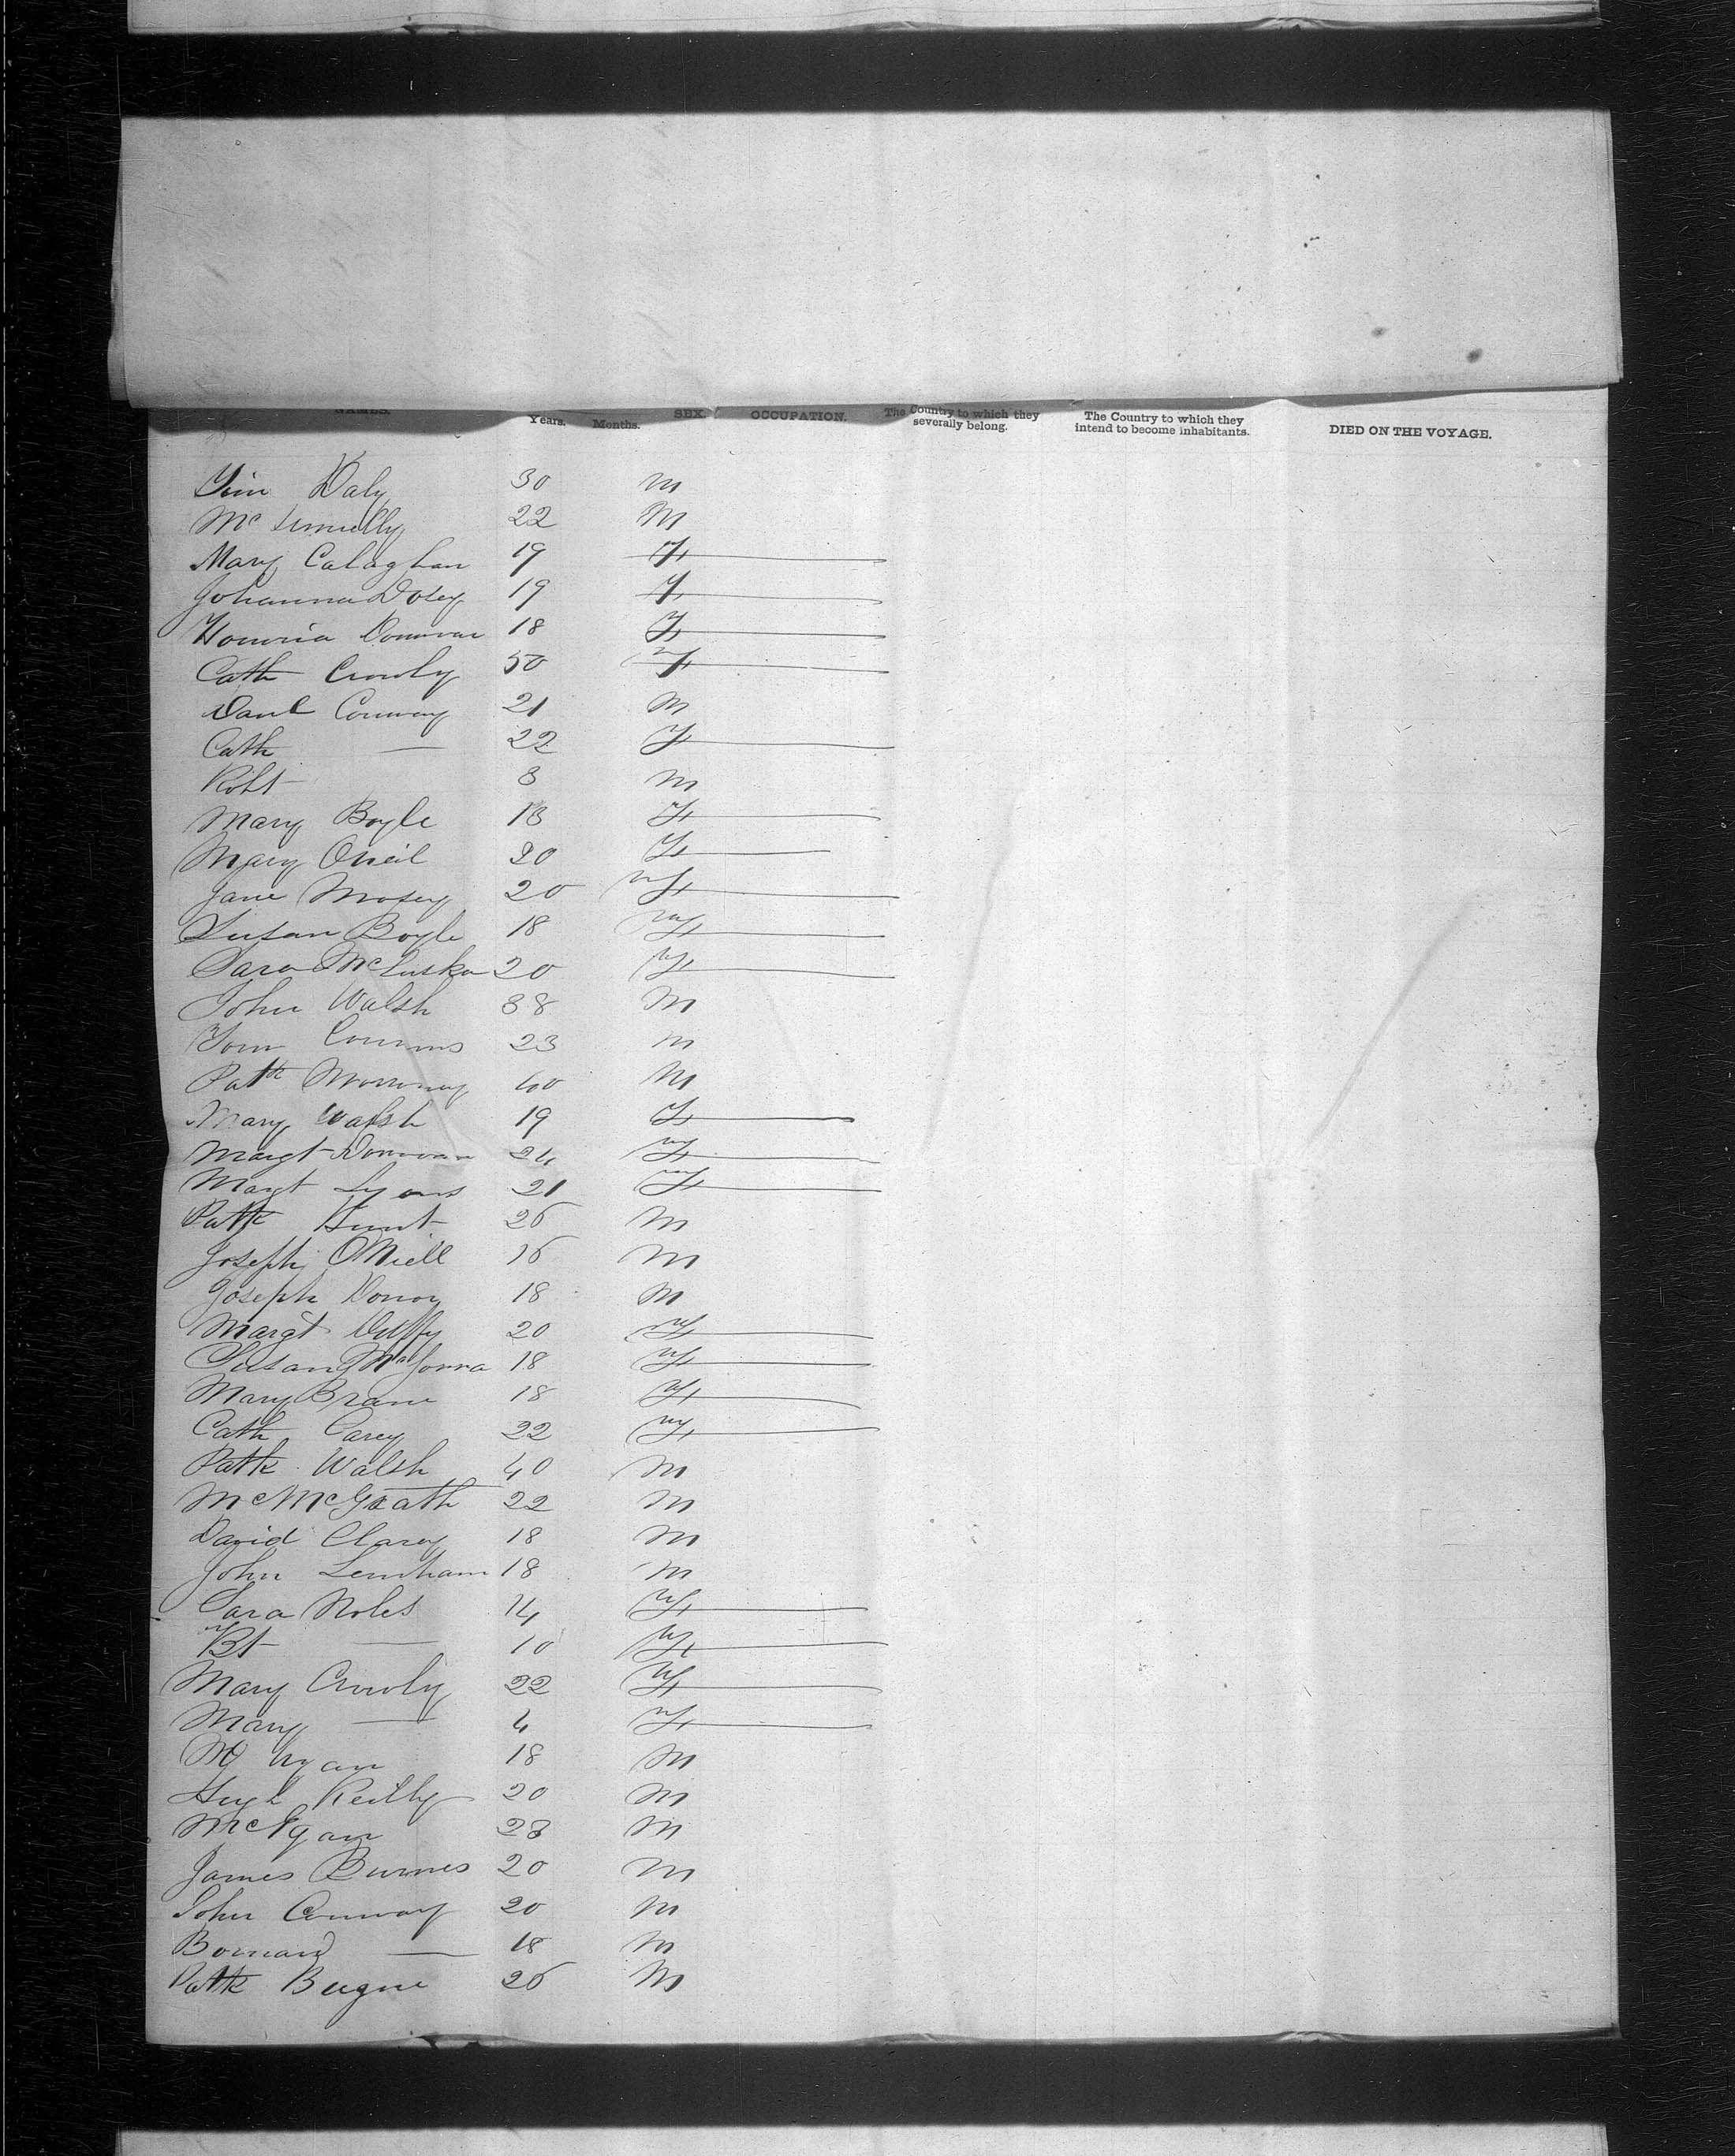 NAMES. Years. Months. SEX. OCCUPATION. The Country to which they severally belong. The Country to which they intend to become inhabitants. DIED ON THE VOYAGE.
Tim Daly 30 M
Mc 22 M
Mary Calaghan 19 F
Johanna 19 F
Donovan 18 F
Cath Crowly 50 F
Danl Conway 21 M
Cath — 22 F
Robt 3 M
Mary Boyle 18 F
Mary Oneil 20 F
Jane 20 F
Susan Boyle 18 F
Sara McLuska 20 F
John Walsh 38 M
Tom 23 M
Patk 40 M
Mary Walsh 19 F
Margt Donovan 24 F
Margt Lyons 21 F
Patk Hunt 25 M
Joseph ONiell 16 M
Joseph 18 M
Margt Duffy 20 F
Susan 18 F
Mary 18 F
Cath Carey 22 F
Patk Walsh 40 M
Mc McGrath 22 M
David Clarey 18 M
John 18 M
Sara Noles 14 F
Bt — 10 F
Mary Crowly 22 F
Mary — 4 F
18 M
Hugh Reilly 20 M
28 M
James Burnes 20 M
John Conway 20 M
Bornard — 18 M
Patk 25 M